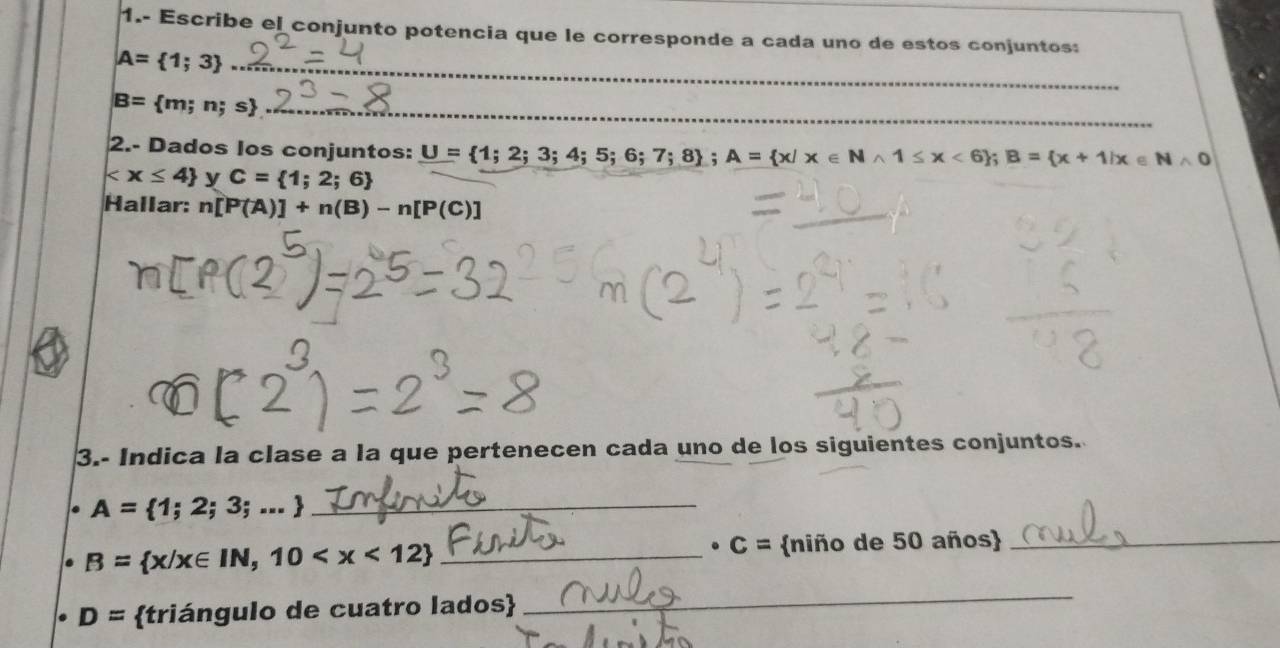 1.- Escribe el conjunto potencia que le corresponde a cada uno de estos conjuntos:
A= {1; 3} 2² = 4
B= {m; n; s} 2³ = 8
2.- Dados los conjuntos: U = {1; 2; 3; 4; 5; 6; 7; 8} ; A = {x/ x ∈ N ∧ 1 ≤ x < 6}; B = {x + 1/x ∈ N ∧ 0
< x ≤ 4} y C = {1; 2; 6}
Hallar: n[P(A)] + n(B) − n[P(C)]
= 40
n[P(2⁵)]=2⁵=32 n(2⁴) = 2⁴ = 16
48
48 -
8
40
[2³) = 2³ = 8
3.- Indica la clase a la que pertenecen cada uno de los siguientes conjuntos.
• A = {1; 2; 3; ... } Infinito
• B = {x/x∈ IN, 10 < x < 12} Finito
• C = {niño de 50 años} nulo
• D = {triángulo de cuatro lados} nulo